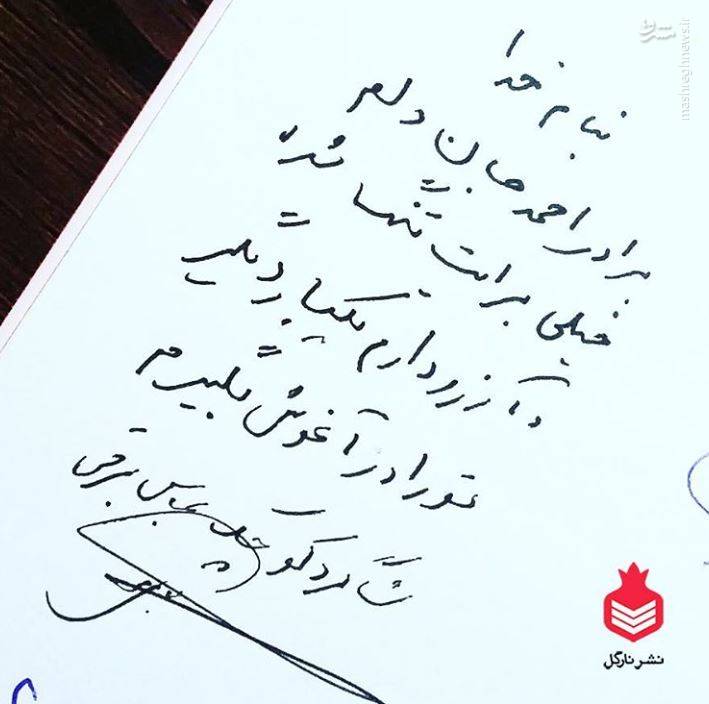 بنام خدا
برادر احمد جان دلم
خیلی برایت تنها شده
و آرزو دارم یکبار دیگر
تو را در آغوش بگیرم
شاگرد کوچک عباس برقی
مشرق
mashreghnews.ir
نشر نارگل